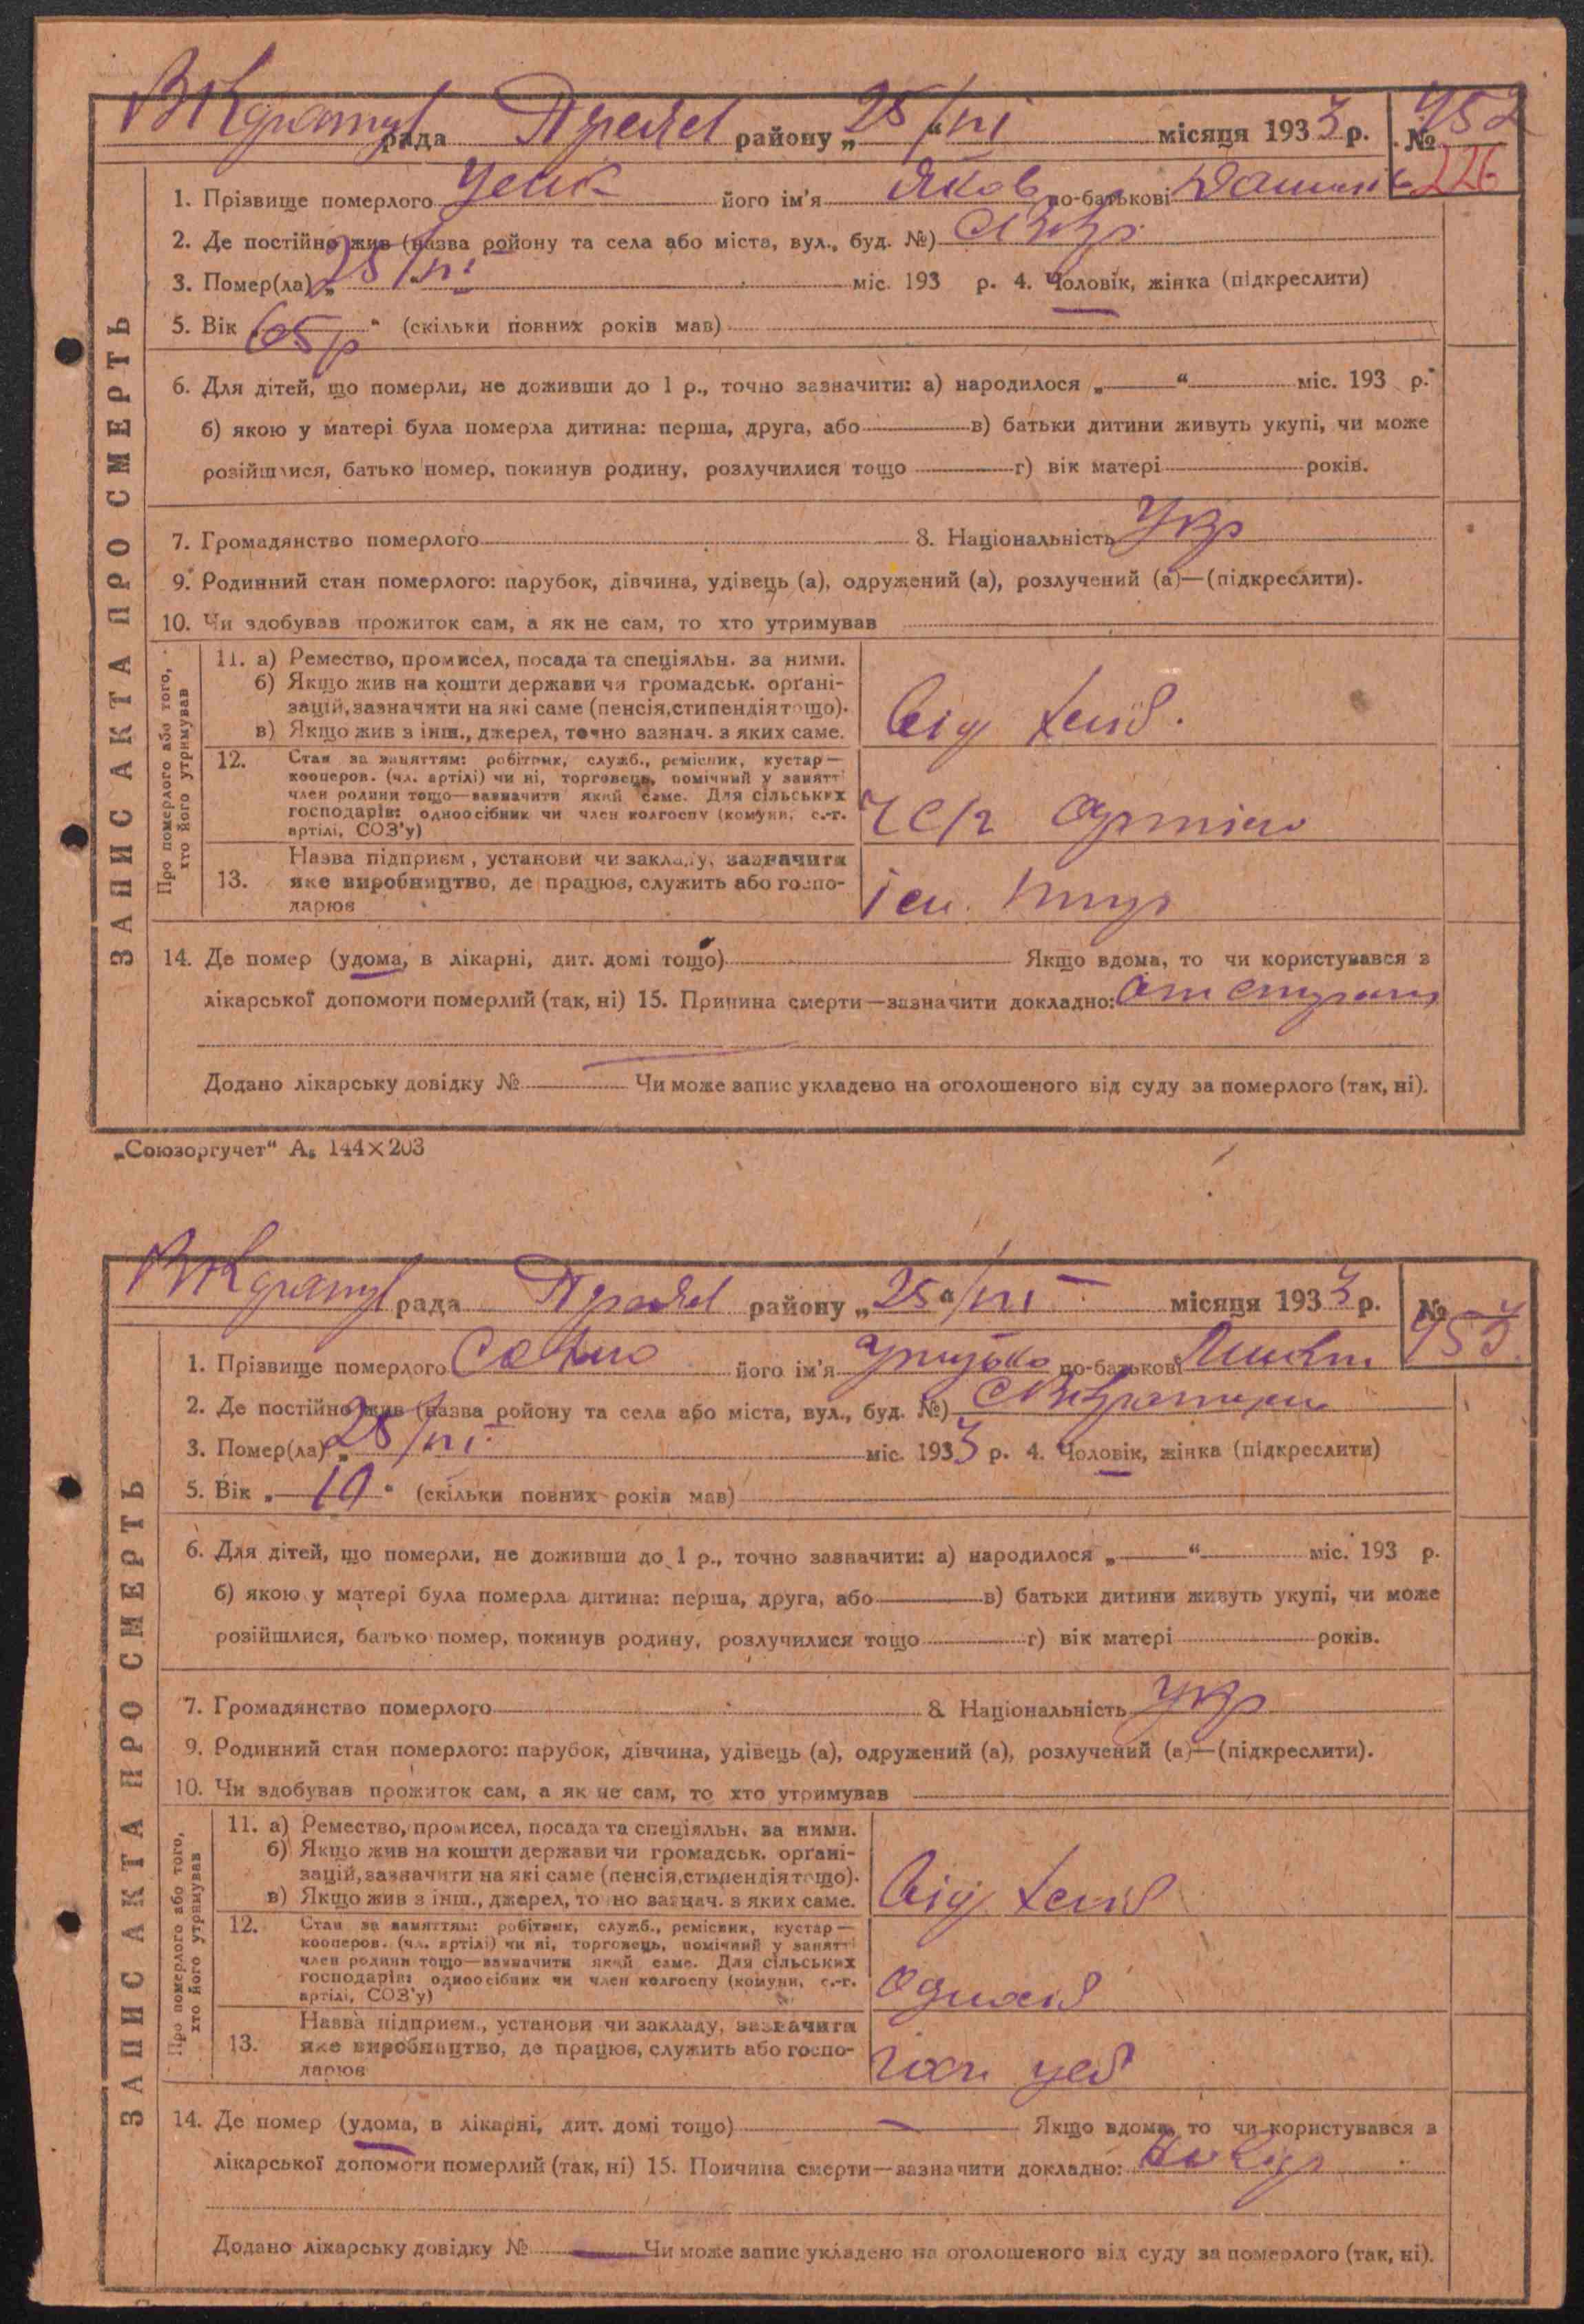 рада району „25/VI місяця 1933 р. № 952
226
1. Прізвище померлого його ім'я Яков по-батькові
2. Де постійно жив (назва ройону та села або міста, вул., буд. №)
3. Помер(ла) „25/VI міс. 193 р. 4. Чоловік, жінка (підкреслити)
5. Вік „65р“ (скільки повних років мав)
6. Для дітей, що померли, не доживши до 1 р., точно зазначити: а) народилося „ “ міс. 193 р.
б) якою у матері була померла дитина: перша, друга, або в) батьки дитини живуть укупі, чи може
розійшлися, батько помер, покинув родину, розлучилися тощо г) вік матері років.
7. Громадянство померлого 8. Національність Укр
9. Родинний стан померлого: парубок, дівчина, удівець (а), одружений (а), розлучений (а)—(підкреслити).
10. Чи здобував прожиток сам, а як не сам, то хто утримував
ЗАПИС АКТА ПРО СМЕРТЬ
Про померлого або того,
хто його утримував
11. а) Ремество, промисел, посада та спеціяльн. за ними.
б) Якщо жив на кошти держави чи громадськ. орґані-
зацій, зазначити на які саме (пенсія, стипендія тощо).
в) Якщо жив з інш., джерел, точно зазнач. з яких саме.
від
12. Стан за заняттям: робітник, служб., ремісник, кустар—
кооперов. (чл. артілі) чи ні, торговець, помічний у занятті
член родини тощо—зазначити який саме. Для сільських
господарів: одноосібник чи член колгоспу (комуни, с.-г.
артілі, СОЗ'у)
13. Назва підприєм, установи чи закладу, зазначити
яке виробництво, де працює, служить або госпо-
дарює
14. Де помер (удома, в лікарні, дит. домі тощо) Якщо вдома, то чи користувався з
лікарської допомоги померлий (так, ні) 15. Причина смерти—зазначити докладно: От
Додано лікарську довідку № Чи може запис укладено на оголошеного від суду за померлого (так, ні).
„Союзоргучет“ А₅ 144×203
рада району „25“/VI місяця 1933 р. № 953
1. Прізвище померлого його ім'я по-батькові
2. Де постійно жив (назва ройону та села або міста, вул., буд. №)
3. Помер(ла) „25/VI міс. 1933 р. 4. Чоловік, жінка (підкреслити)
5. Вік „ “ (скільки повних років мав)
6. Для дітей, що померли, не доживши до 1 р., точно зазначити: а) народилося „ “ міс. 193 р.
б) якою у матері була померла дитина: перша, друга, або в) батьки дитини живуть укупі, чи може
розійшлися, батько помер, покинув родину, розлучилися тощо г) вік матері років.
7. Громадянство померлого 8. Національність Укр
9. Родинний стан померлого: парубок, дівчина, удівець (а), одружений (а), розлучений (а)—(підкреслити).
10. Чи здобував прожиток сам, а як не сам, то хто утримував
ЗАПИС АКТА ПРО СМЕРТЬ
Про померлого або того,
хто його утримував
11. а) Ремество, промисел, посада та спеціяльн. за ними.
б) Якщо жив на кошти держави чи громадськ. орґані-
зацій, зазначити на які саме (пенсія, стипендія тощо).
в) Якщо жив з інш., джерел, точно зазнач. з яких саме.
від
12. Стан за заняттям: робітник, служб., ремісник, кустар—
кооперов. (чл. артілі) чи ні, торговець, помічний у занятті
член родини тощо—зазначити який саме. Для сільських
господарів: одноосібник чи член колгоспу (комуни, с.-г.
артілі, СОЗ'у)
13. Назва підприєм., установи чи закладу, зазначити
яке виробництво, де працює, служить або госпо-
дарює
14. Де помер (удома, в лікарні, дит. домі тощо) Якщо вдома, то чи користувався з
лікарської допомоги померлий (так, ні) 15. Причина смерти—зазначити докладно:
Додано лікарську довідку № Чи може запис укладено на оголошеного від суду за померлого (так, ні).